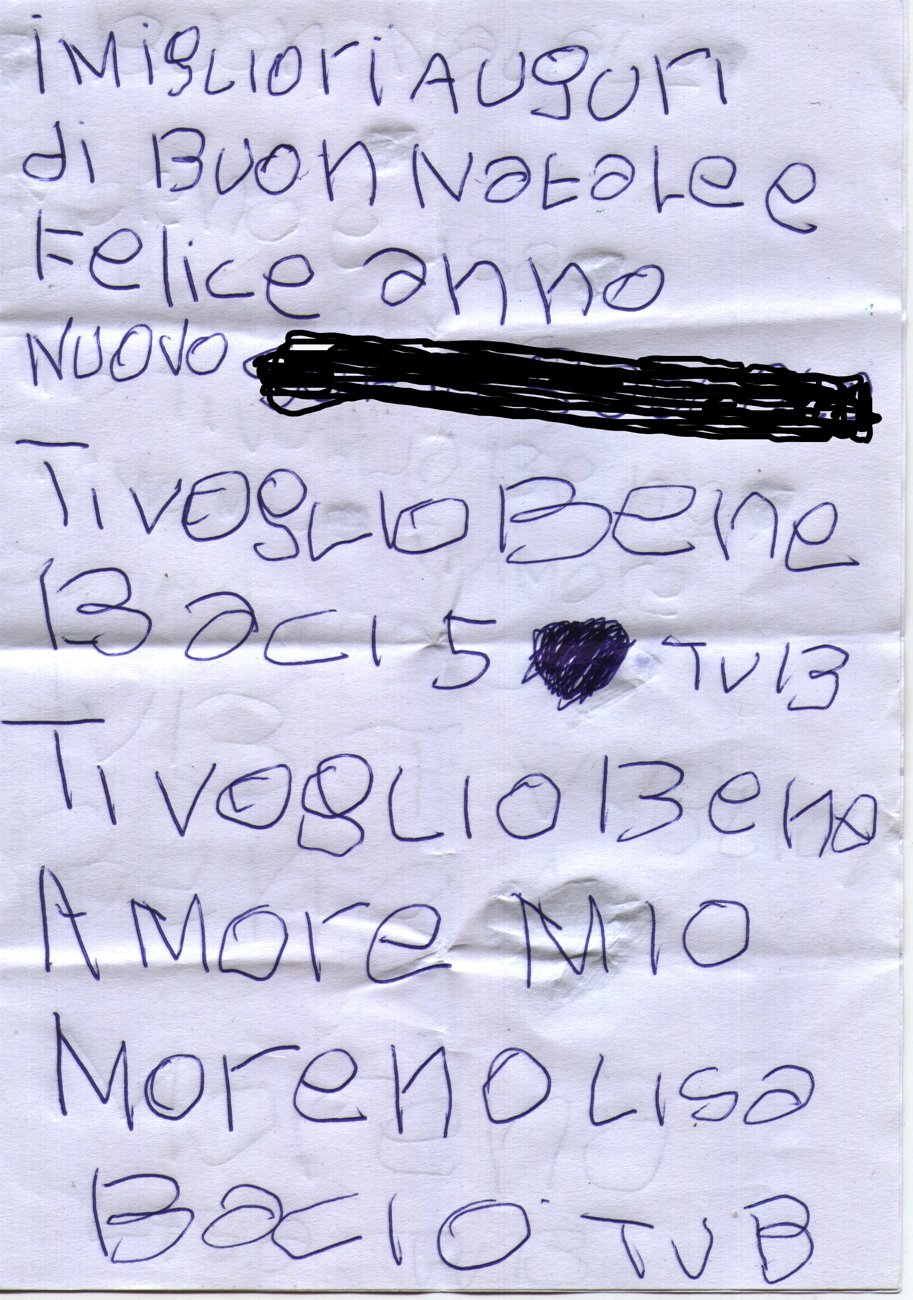 i MigLiori AUgUri
di BUon NataLe e
Felice anno
NUOVO
Ti VOgLio Bene
Baci 5 TVB
Ti VogLio Bene
AMore Mio
Moreno Lisa
Bacio TVB